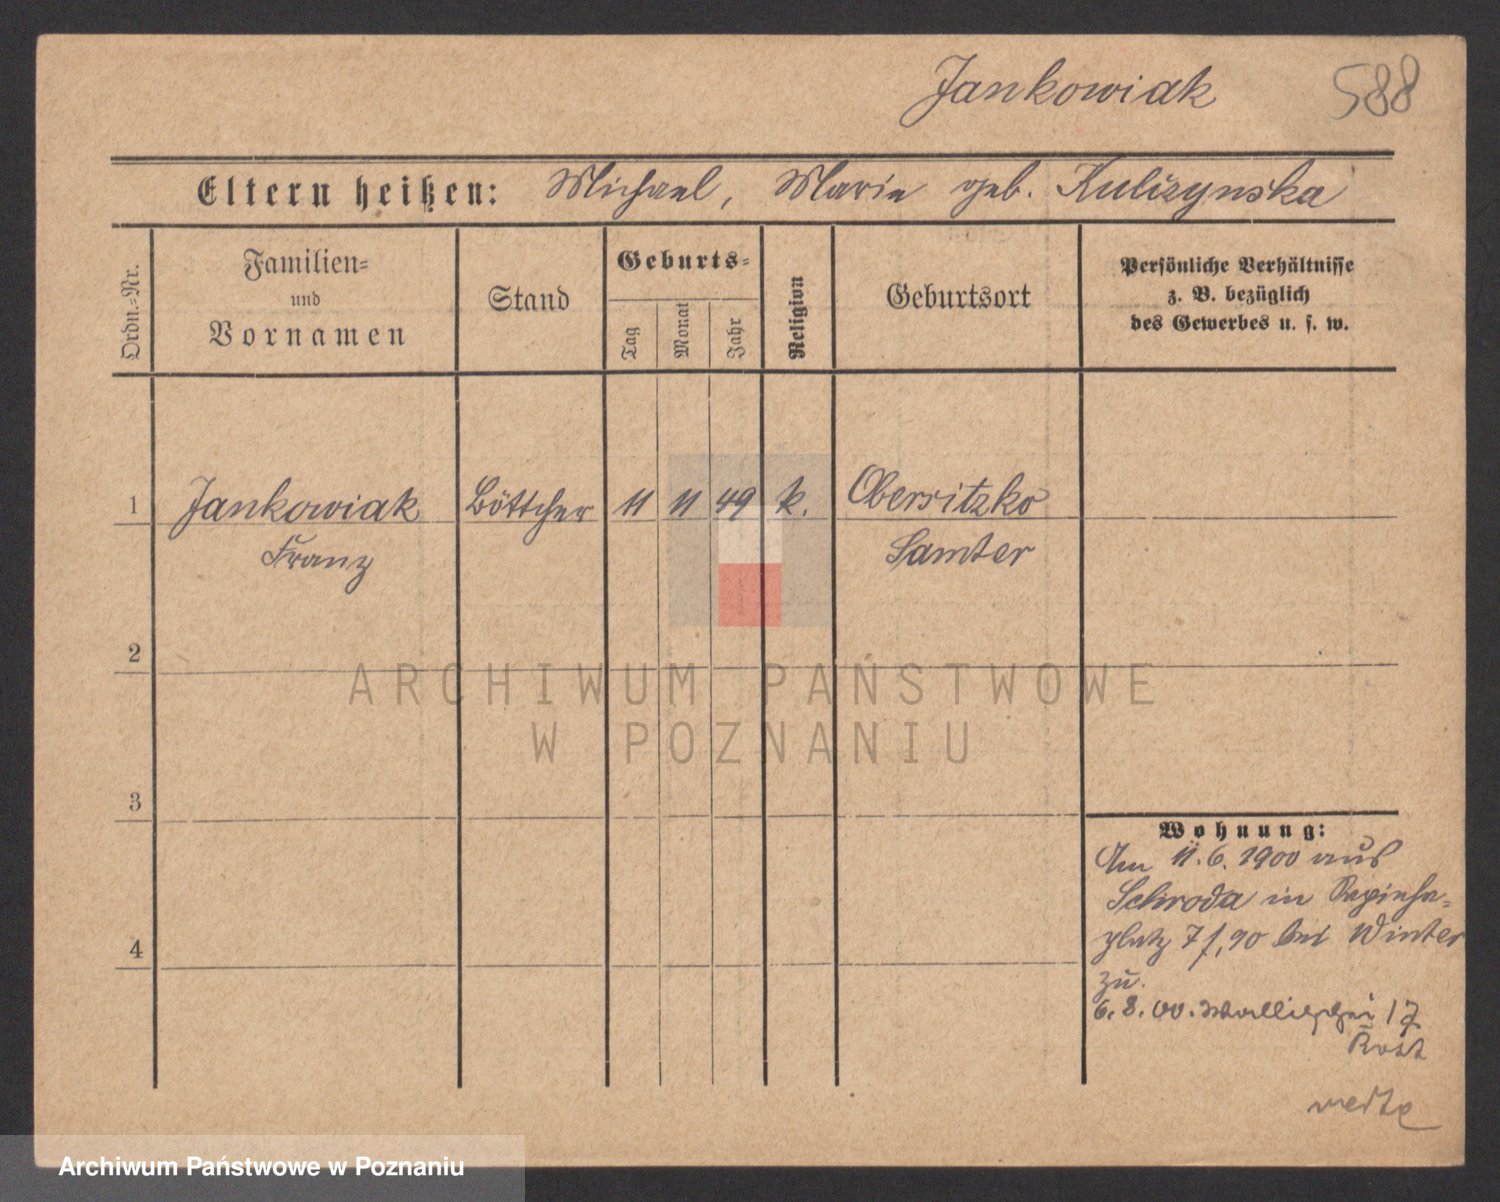 Jankowiak 588
Eltern heißen: Michael, Marie geb. Kulizynska
Ordn.-Nr.
Familien-
und
Vornamen
Stand
Geburts-
Tag
Monat
Jahr
Religion
Geburtsort
Persönliche Verhältnisse
z. B. bezüglich
des Gewerbes u. s. w.
1 Jankowiak Böttcher 11 11 49 k. Obersitzko
Franz Samter
2
3
4
Wohnung:
Am 11.6.1900 aus
Schroda in Sapieha-
platz 7 bei Winter
zu.
6.8.00. Wallischei 17
ARCHIWUM PAŃSTWOWE
W POZNANIU
Archiwum Państwowe w Poznaniu